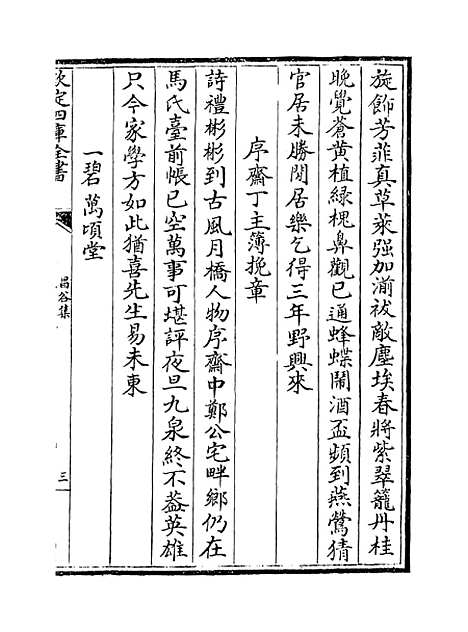 旋飾芳菲真草萊强加湔祓敵塵埃春將紫翠籠丹桂
晚覺蒼黄植緑槐鼻觀已通蜂蝶鬧酒盃頻到燕鶯猜
官居未勝閒居樂乞得三年野興來
序齋丁主簿挽章
詩禮彬彬到古風月橋人物序齋中鄭公宅畔鄉仍在
馬氏臺前帳已空萬事可堪評夜旦九泉終不葢英雄
只今家學方如此猶喜先生易未東
一碧萬頃堂
欽定四庫全書
昌谷集
三